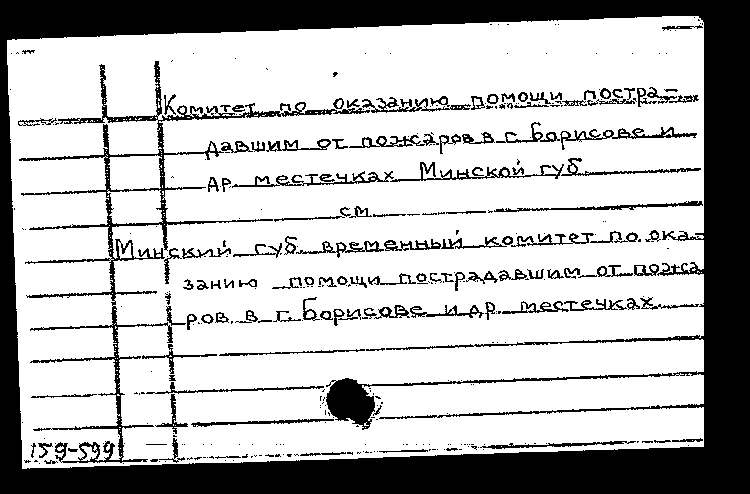 Комитет по оказанию помощи постра-
давшим от пожаров в г. Борисове и
др. местечках Минской губ.
см.
Минский губ. временный комитет по ока-
занию помощи пострадавшим от пожа
ров в г. Борисове и др. местечках.
159-599